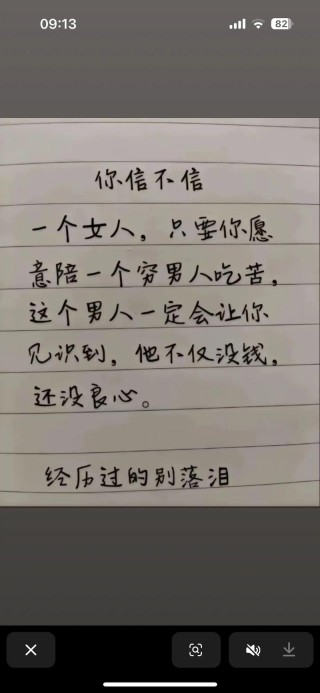 09:13
82
你信不信
一个女人，只要你愿
意陪一个穷男人吃苦，
这个男人一定会让你
见识到，他不仅没钱，
还没良心。
经历过的别落泪